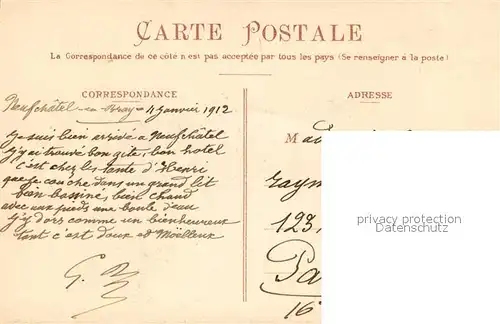 CARTE POSTALE
La Correspondance de ce côté n'est pas acceptée par tous les pays (Se renseigner à la poste)
CORRESPONDANCE
ADRESSE
Neufchâtel en Bray 11 Janvier 1912
Je suis bien arrivé à Neufchâtel
j'y ai trouvé bon gite, bon hotel
c'est chez les tante d'Henri
que je couche dans un grand lit
bien bassiné, bien chaud
avec aux pieds une boule d'eau
j'y dors comme un bienheureux
tant c'est doux et Möelleux
G.
Ma
Raym
123,
Pa
16
privacy protection
watermark